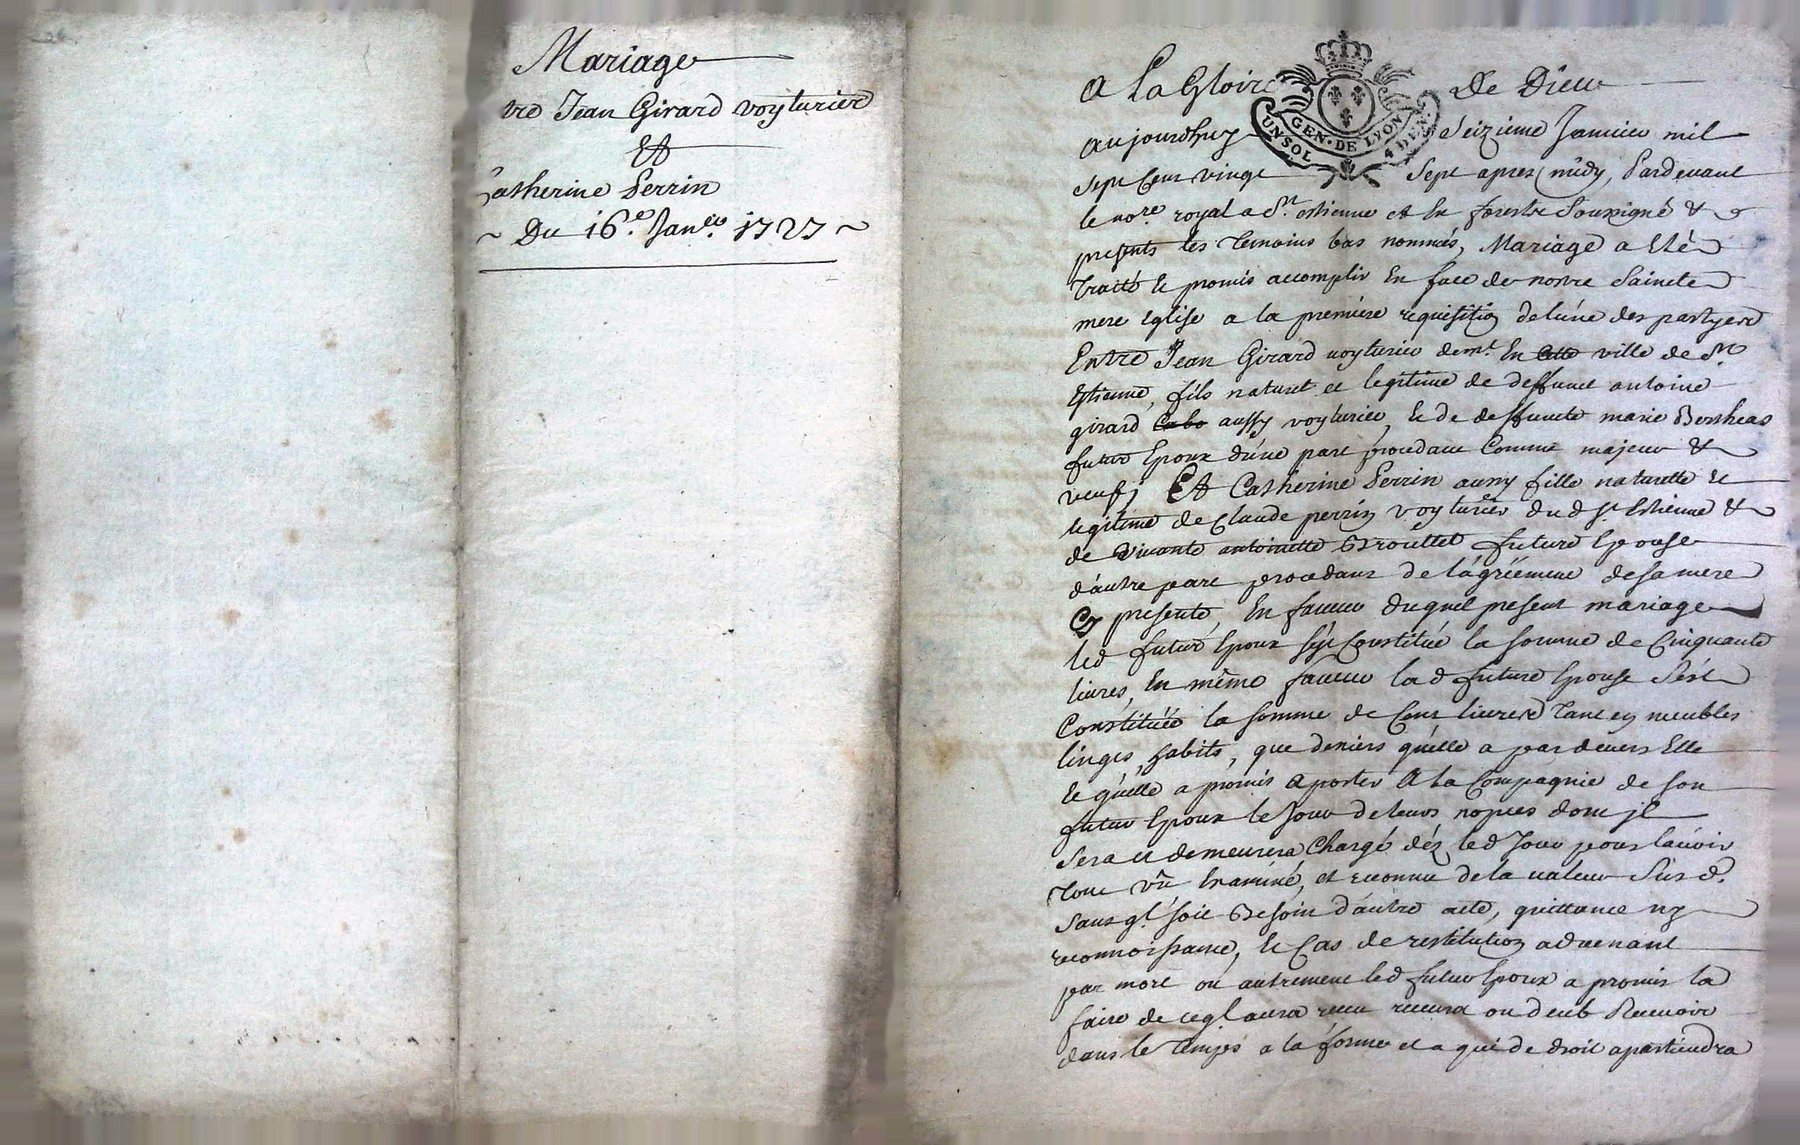 Mariage
tre Jean Girard voyturier
Et
Catherine Perrin
~ Du 16.e Janer 1727 ~
A La Gloire De Dieu
GEN · DE LYON
UN SOL 4 DEN.
Aujourdhuy Seizieme Janvier mil
Sept Cent vingt Sept apres midy, Pardevant
le nore royal a St. estienne et En forests Soussigné &
presents les temoins bas nommés, Mariage a Eté
Traité Et promis accomplir En face de nostre Saincte
mere Eglise a la premiere requisition de l'une des partyes
Entre Jean Girard voyturier demt. En cette ville de St
Estienne, fils naturel et legitime de deffunct antoine
girard aussy voyturier, Et de deffuncte marie Bertheas
futur Epoux d'une part procedant Comme majeur &
veuf; Et Catherine Perrin aussy fille naturelle Et
legitime de Claude perrin voyturier dud St. Estienne &
de vivante antoinette Brouttet future Epouse
d'autre part procedant de l'agréement de sa mere
Cy presente, En faveur duquel present mariage
led futur Epoux s'est Constitué la somme de Cinquante
livres, En même faveur lad future Epouse s'est
Constituée la somme de Cent livres Tant en meubles
linges, habits, que deniers quelle a par devers Elle
Et quelle a promis aporter A la Compagnie de son
futur Epoux le Jour de leurs nopces dont jl
Sera et demeurera Chargé déz led Jour pour l'avoir
Tout vû Examiné, et reconnu de la valeur Sus d.
Sans ql soit Besoin d'autre acte, quittance ny
reconnoissance, Et Cas de restitution advenant
par mort ou autrement led futur Epoux a promis la
faire de ce ql aura receu recevra ou deub Recevoir
dans le Temps a la forme et a qui de droit apartiendra